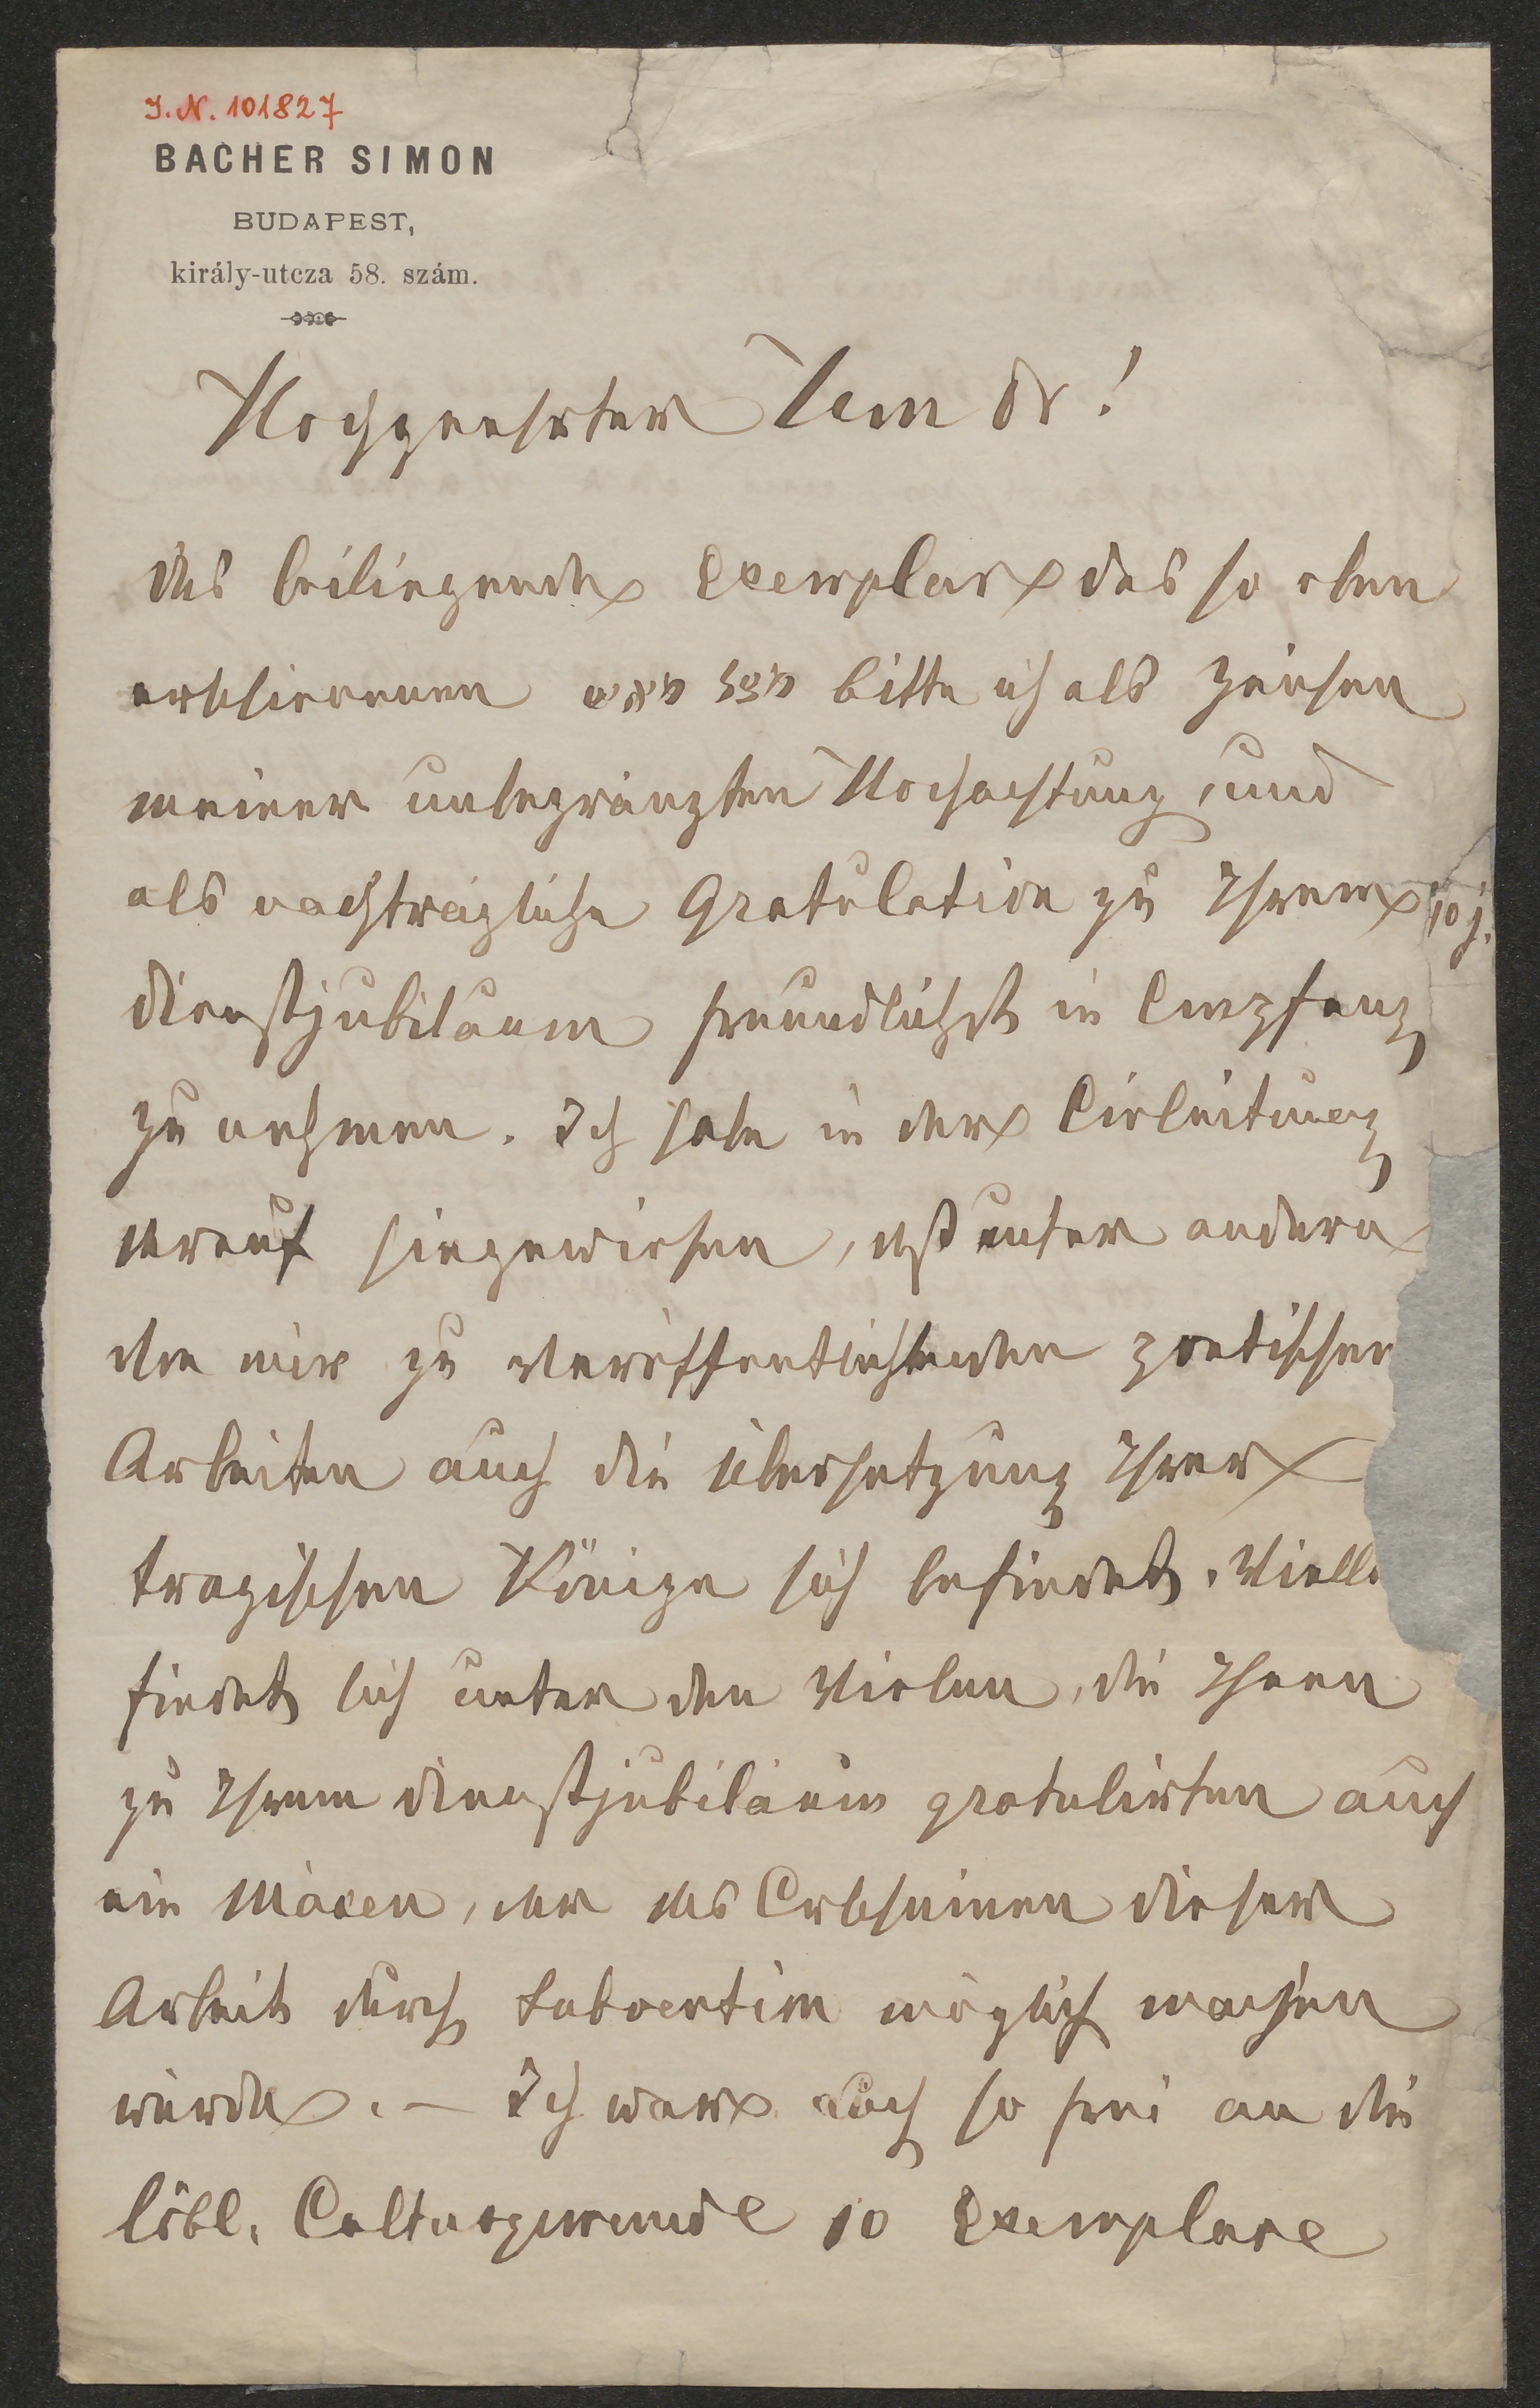 J. N. 101827
BACHER SIMON
BUDAPEST,
király-utcza 58. szám.
Hochgeehrter Herr Dr!
das beiliegende Exemplar des so eben
erschienenen bitte ich als Zeichen
meiner unbegränzten Hochachtung, und
als nachträgliche Gratulation zu Ihrem 10 j.
Dienstjubiläum freundlichst in Empfang
zu nehmen. Ich habe in der Einleitung
darauf hingewiesen, daß unter andern
von mir zu veröffentlichenden poetischen
Arbeiten auch die Übersetzung Ihrer
tragischen Könige sich befindet. Viell
findet sich unter den Vielen, die Ihnen
zu Ihrem Dienstjubiläum gratulirten auch
ein Mäcen, der das Erscheinen dieser
Arbeit durch Subvention möglich machen
würde. – Ich war auch so frei an die
löbl. Cultusgemeinde 10 Exemplare